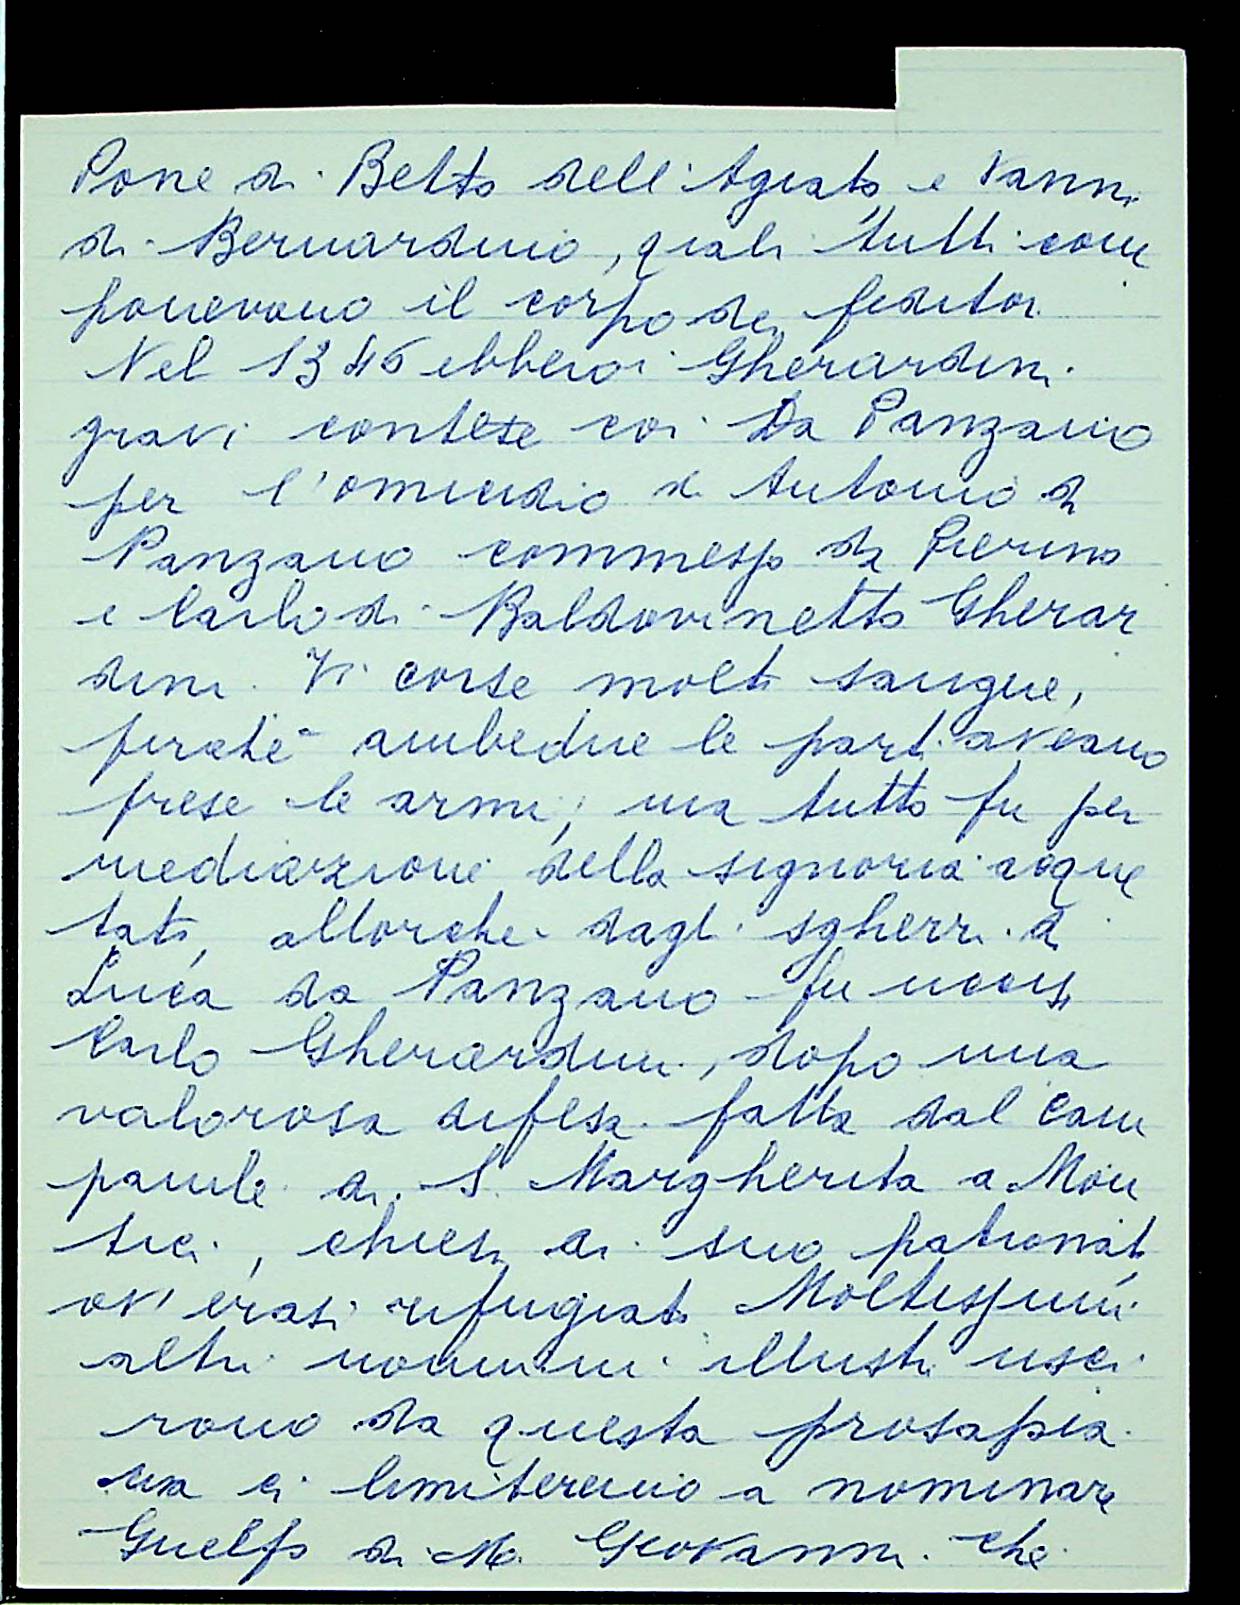 Pone di Betto dell'Agiato e Vanni
di Bernardino, quali tutti com
ponevano il corpo dei feditori
Nel 1346 ebbero i Gherardini
gravi contese coi Da Panzano
per l'omicidio di Antonio da
Panzano commesso da Pierino
e Carlo di Baldovinetto Gherar
dini. Vi corse molto sangue,
perchè ambedue le parti aveano
prese le armi, ma tutto fu per
mediazione della signoria acque
tato, allorche dagli sgherri di
Luca da Panzano fu ucciso
Carlo Gherardini, dopo una
valorosa difesa fatta dal cam
panile di S. Margherita a Mon
tici, chiesa di suo patronato
ov'erasi rifugiato Moltissimi
altri uomini illustri usci
rono da questa prosapia
ma ci limiteremo a nominare
Guelfo di M. Giovanni che